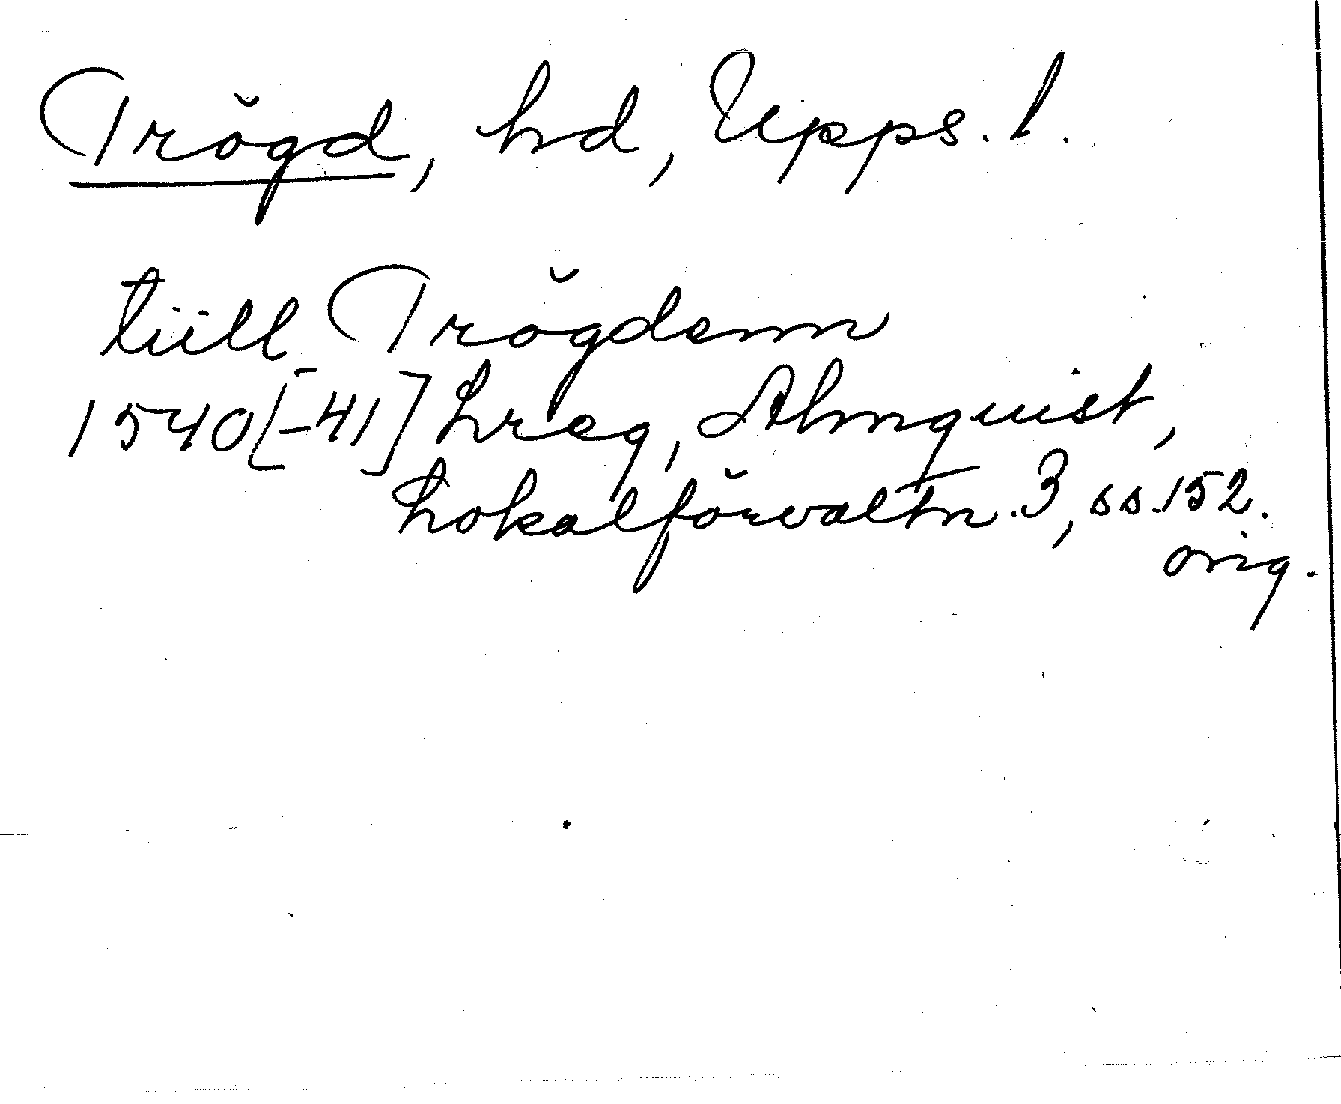 Trögd, hd, Upps. l.
tiill Trögdenn
1540[-41] Lreg, Almquist,
Lokalförvaltn. 3, ss. 152.
orig.